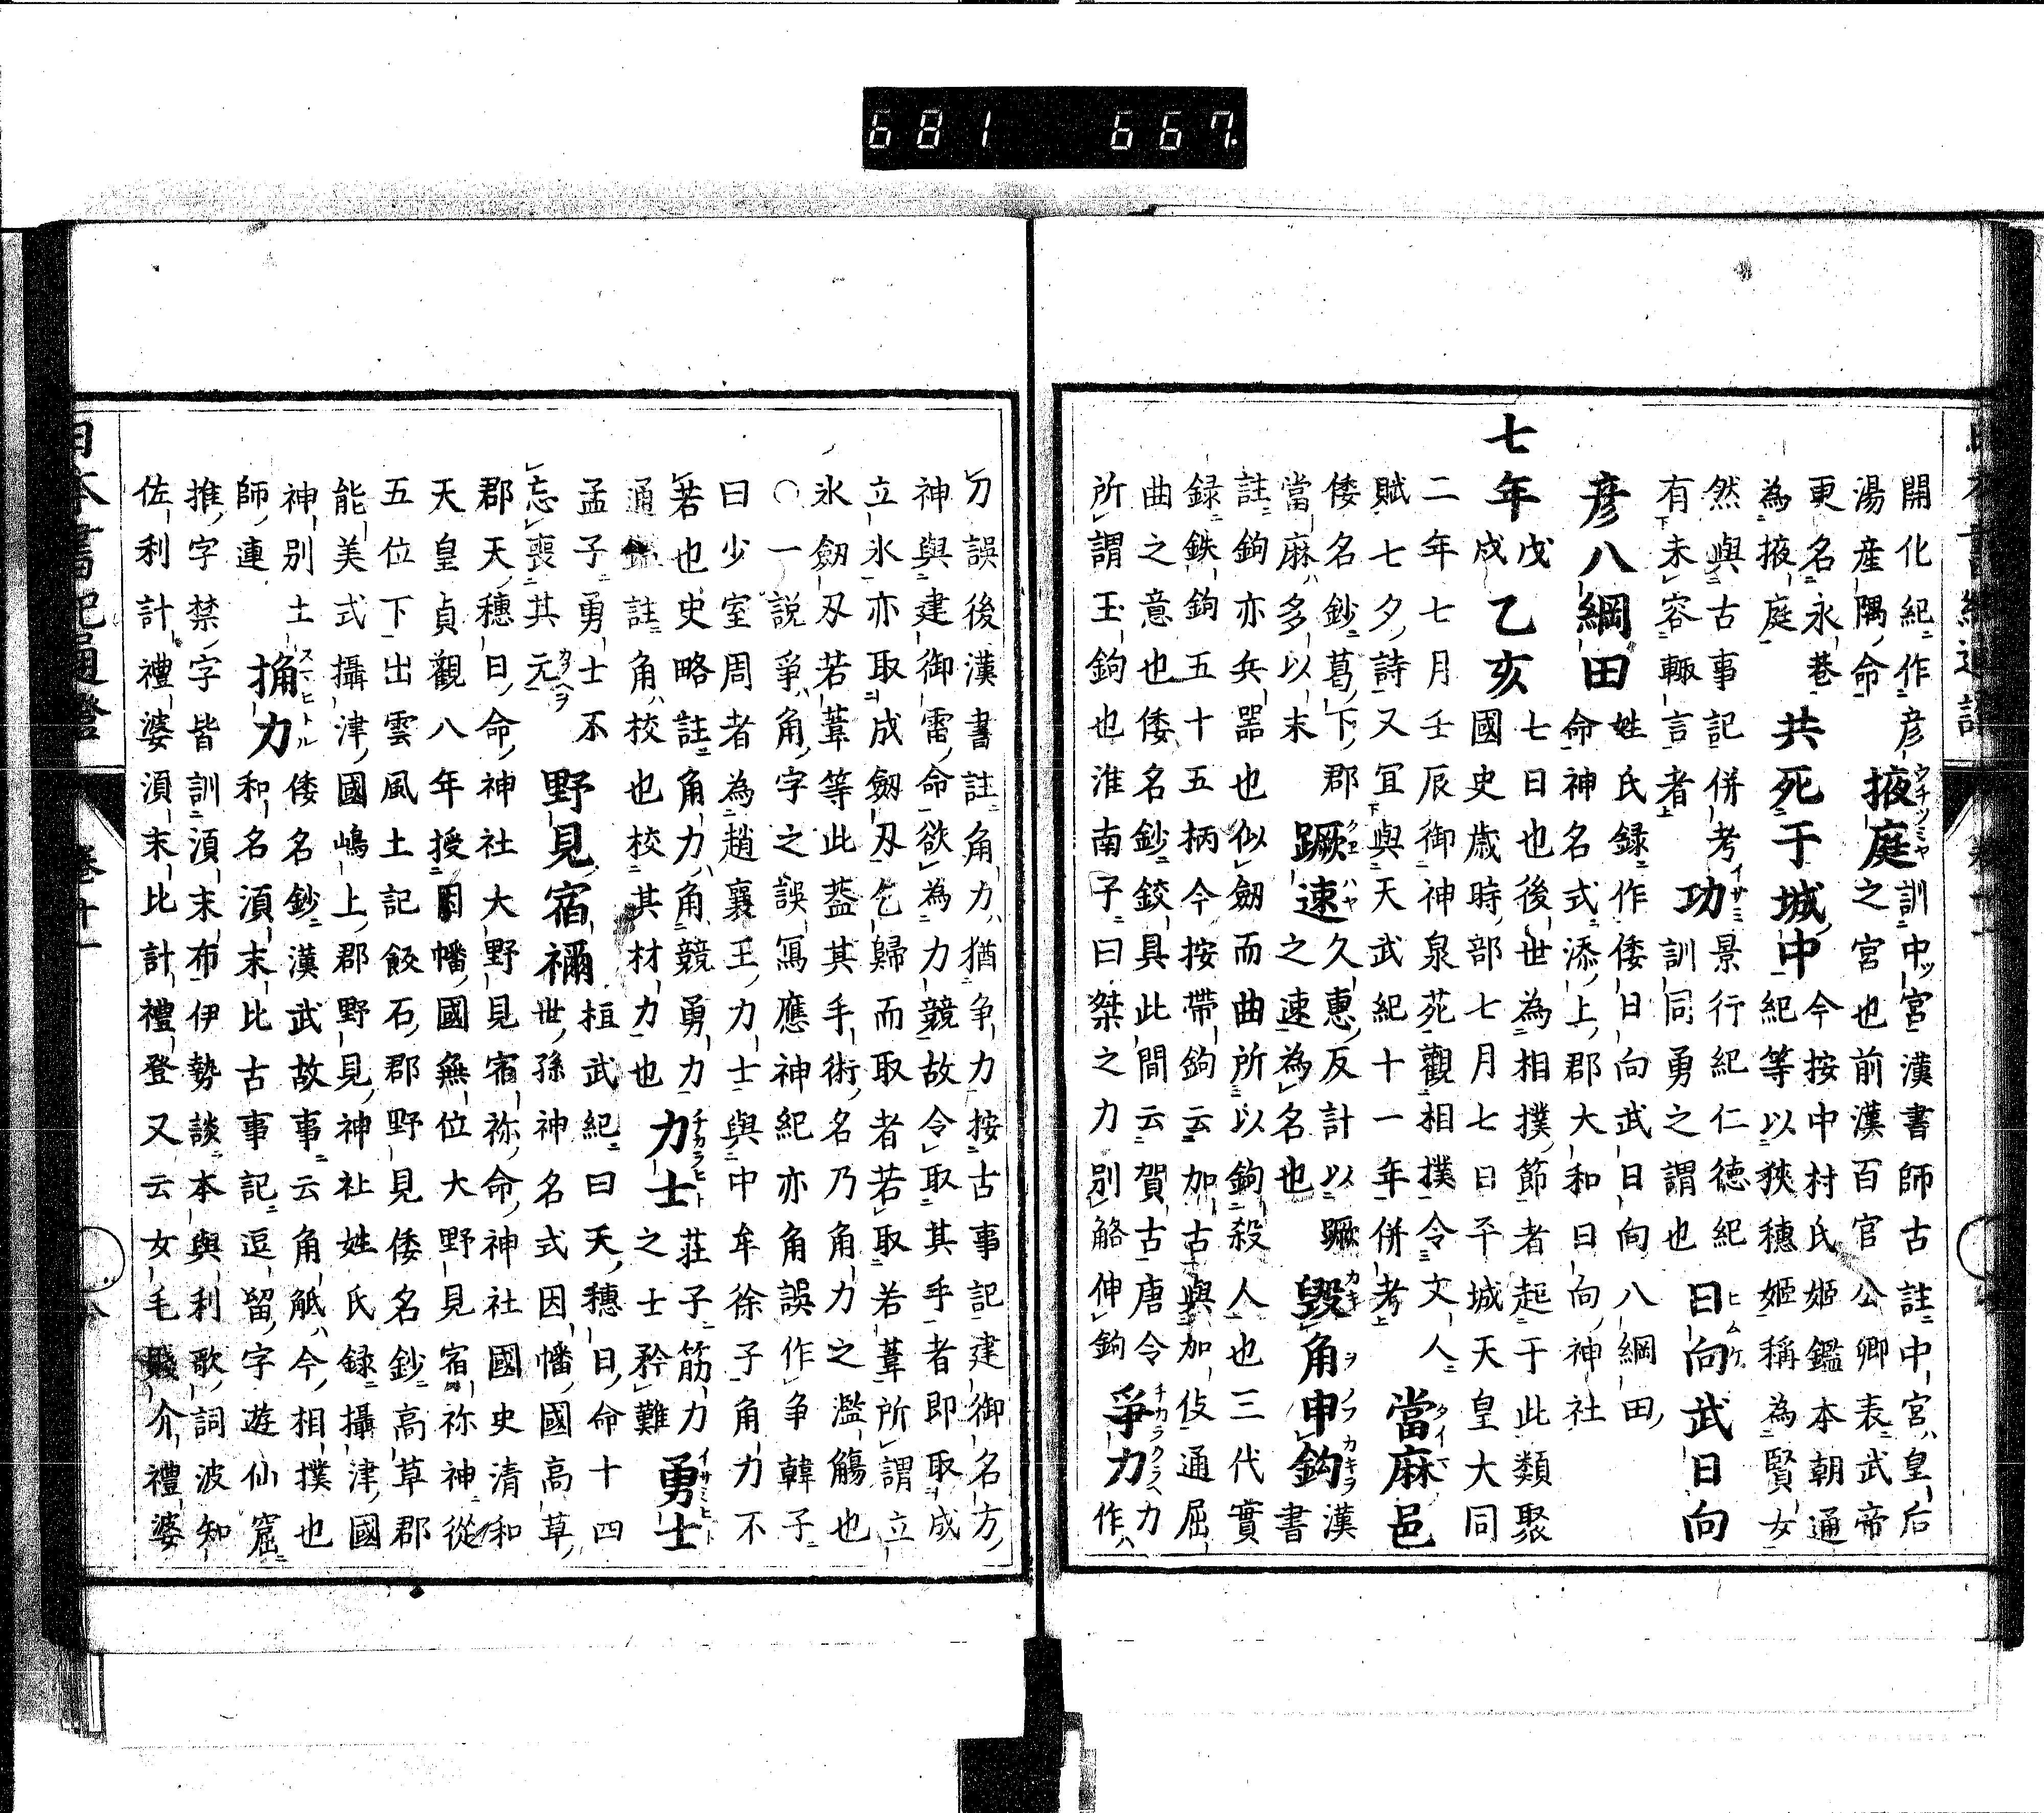 開化紀作彦
湯産隅命
掖庭
ウチツミヤ
訓中ツ宮漢書師古註中宮ハ皇后
之宮也前漢百官公卿表武帝
更名永巷
為掖庭
共死于城中
今按中村氏姫鑑本朝通
紀等以狹穗姫稱為賢女
然與古事記併考
有未容輙言者
功
イサミ
景行紀仁徳紀
訓同勇之謂也
日向武日向
ヒムケ
彦八綱田
姓氏録作倭日向武日向八綱田
命神名式添上郡大和日向神社
七年
戊
戌
乙亥
七日也後世為相撲節者起于此類聚
國史歳時部七月七日平城天皇大同
二年七月壬辰御神泉苑觀相撲令文人
賦七夕詩又宜與天武紀十一年併考
當麻邑
タイマ
倭名鈔葛下郡
當麻ハ多以末
蹶速
クエハヤ
久惠反計以蹶
之速為名也
毀角申鈎
カキヲノフカキヲ
漢
書
註鈎亦兵噐也似劔而曲所以鈎殺人也三代實
録鉄鈎五十五柄今按帶鈎云加古與加伎通屈
曲之意也倭名鈔鉸具此間云賀古唐令
所謂玉鈎也淮南子曰桀之力別觡伸鈎
爭力
チカラクラヘ
力
作ハ
刀誤後漢書註角力ハ猶争力按古事記建御名方
神與建御雷命欲為力競故令取其手者即取成
立氷亦取成劔刄乞歸而取者若取若葦所謂立
氷劔刄若葦等此葢其手術名乃角力之濫觴也
〇一説爭ハ角字之誤冩應神紀亦角誤作争韓子
曰少室周者為趙襄王力士與中牟徐子角力不
若也史略註角力ハ角競勇力
通鑑註角ハ校也校其材力也
力士
チカラヒト
莊子筋力
之士矜難
勇士
イサミヒト
孟子勇士不
忘喪其元
野見宿禰
桓武紀曰天穗日命十四
世孫神名式因幡國高草
郡天穗日命神社大野見宿祢命神社國史清和
天皇貞觀八年授因幡國無位大野見宿祢神從
五位下出雲風土記飯石郡野見倭名鈔高草郡
能美式攝津國嶋上郡野見神社姓氏録攝津國
神別土
師連
捔力
スマヒトル
倭名鈔漢武故事云角觝ハ今相撲也
和名湏末比古事記逗留字遊仙窟
推字禁字皆訓湏末布伊勢談本與利歌詞波知
佐利計禮婆湏末比計禮登又云女毛賤介禮婆
日本書紀通證 卷十一
八
681 667